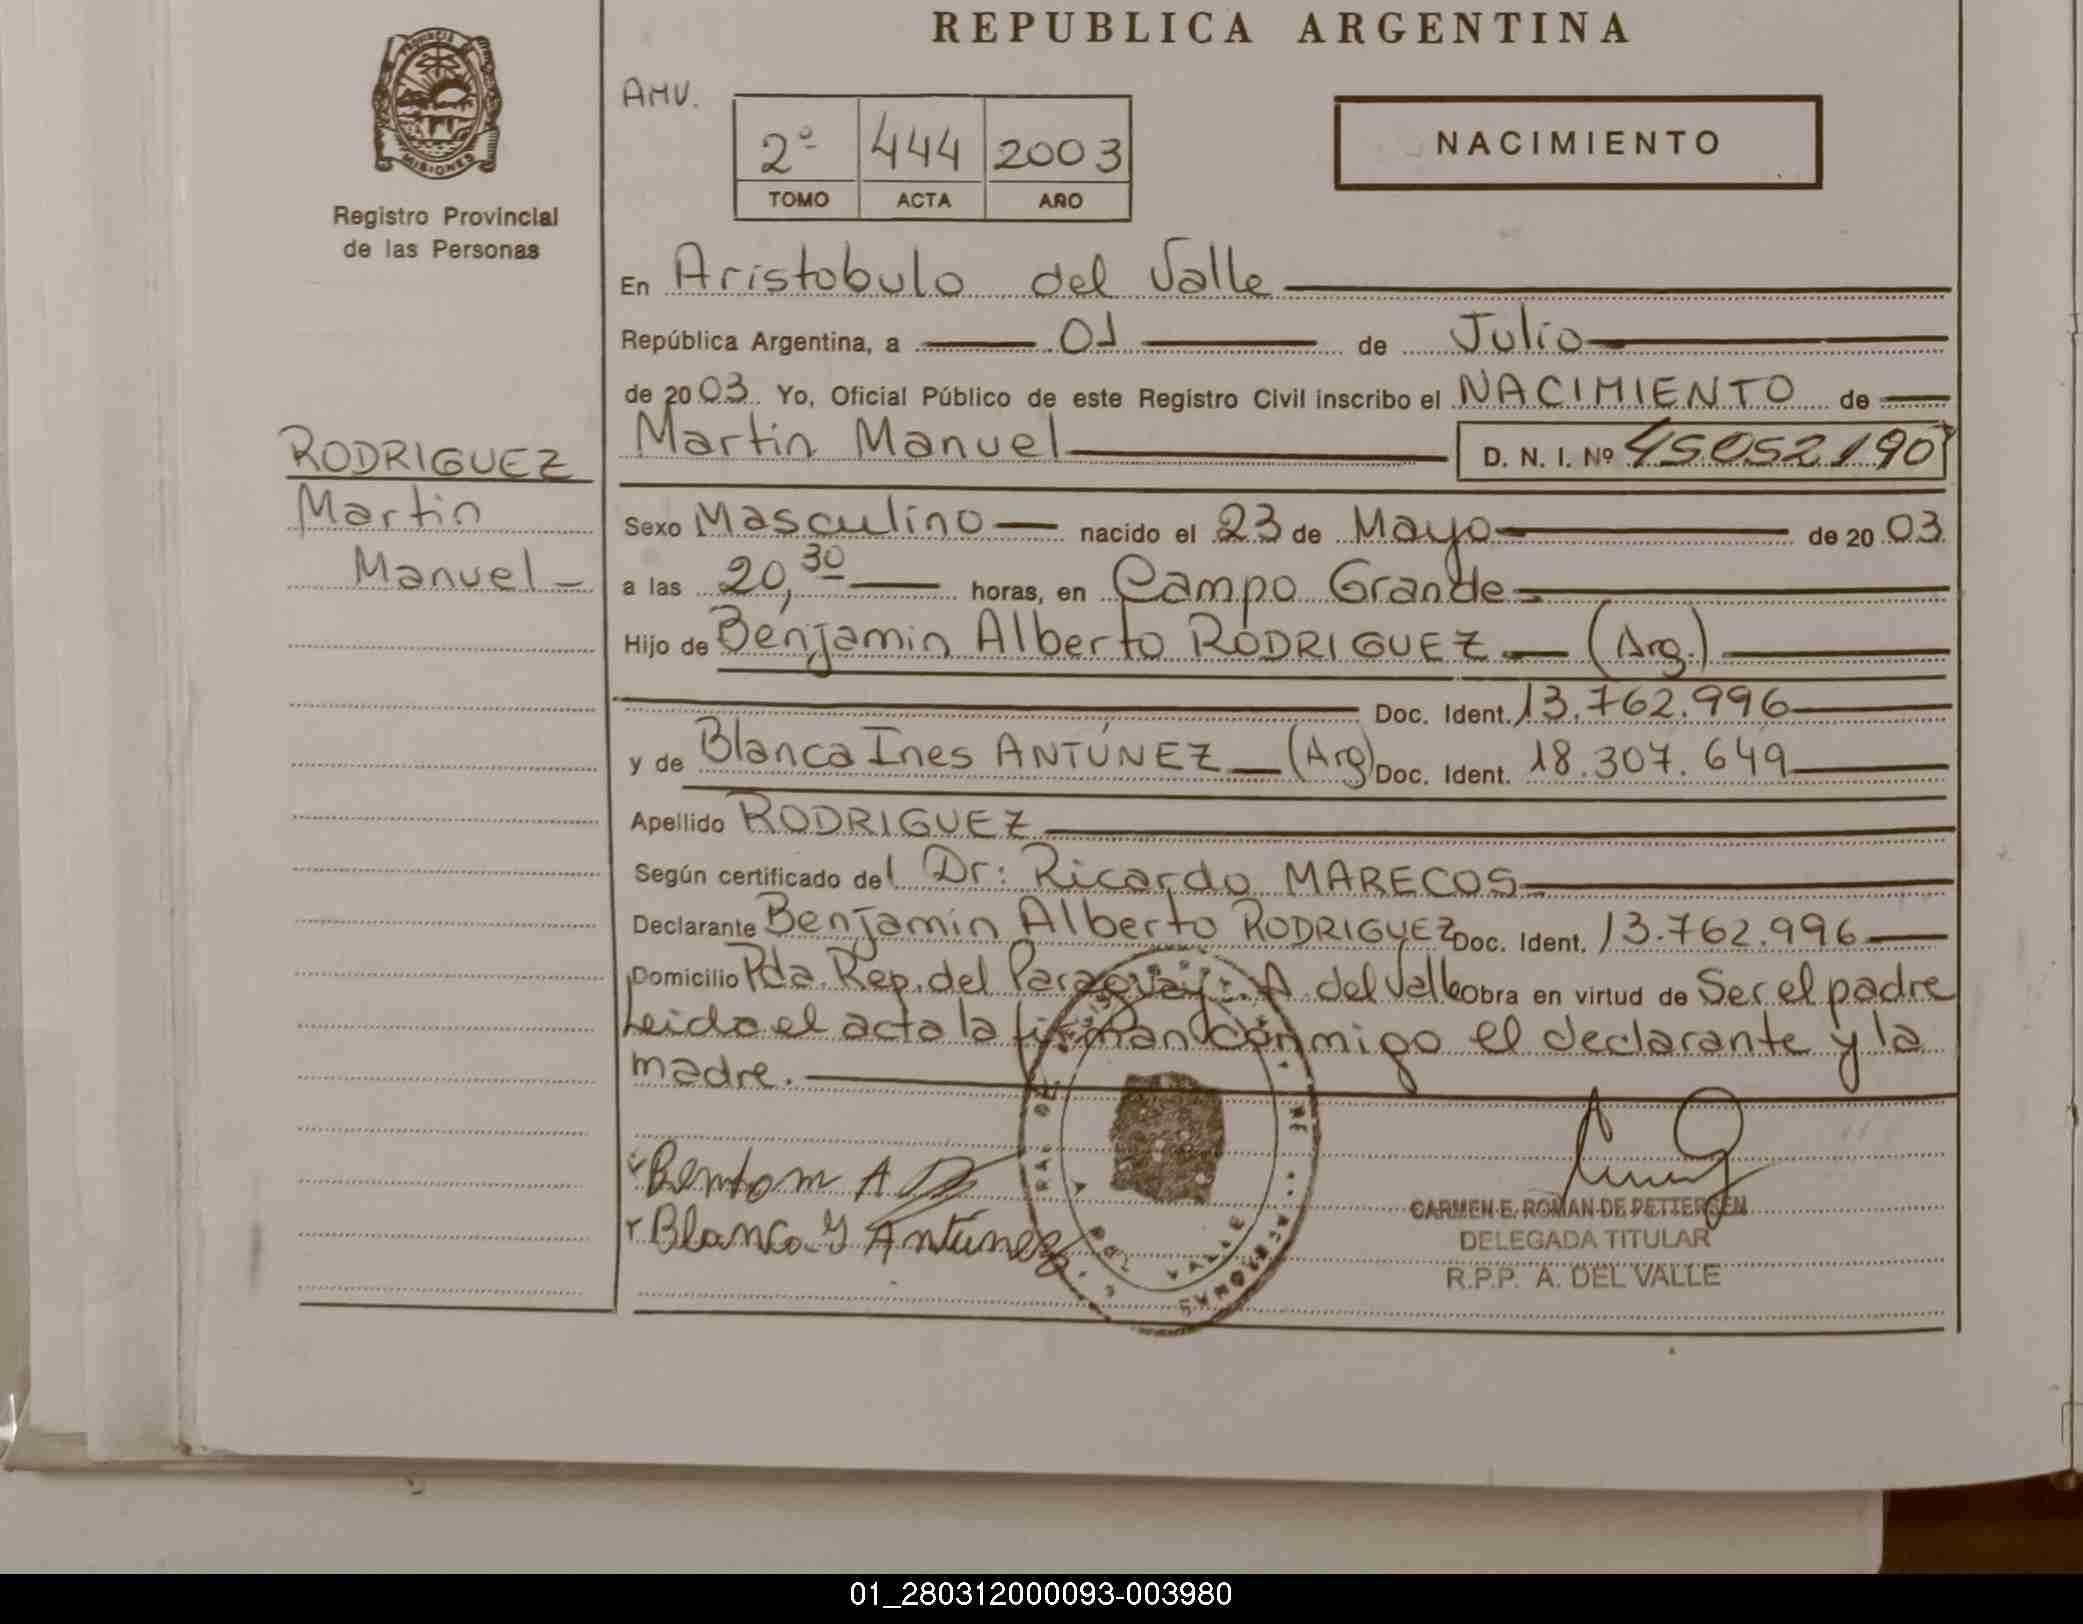 REPUBLICA ARGENTINA
PROVINCIA DE
MISIONES
Registro Provincial
de las Personas
AMV.
2º 444 2003
TOMO ACTA AÑO
NACIMIENTO
En Aristobulo del Valle
República Argentina, a 01 de Julio
de 2003. Yo, Oficial Público de este Registro Civil inscribo el NACIMIENTO de
Martin Manuel D. N. I. Nº 45052190
RODRIGUEZ
Martin
Manuel
Sexo Masculino nacido el 23 de Mayo de 2003
a las 20,30 horas, en Campo Grande
Hijo de Benjamin Alberto RODRIGUEZ (Arg.)
Doc. Ident. 13.762.996
y de Blanca Ines ANTÚNEZ (Arg) Doc. Ident. 18.307.649
Apellido RODRIGUEZ
Según certificado del Dr: Ricardo MARECOS
Declarante Benjamin Alberto RODRIGUEZ Doc. Ident. 13.762.996
Domicilio Pda. Rep. del Paraguay. A del Valle obra en virtud de Ser el padre
Leido el acta la firman conmigo el declarante y la
madre.
Blanca Y Antúnez
CARMEN E. ROMAN DE PETTERSEN
DELEGADA TITULAR
R.P.P. A. DEL VALLE
01_280312000093-003980